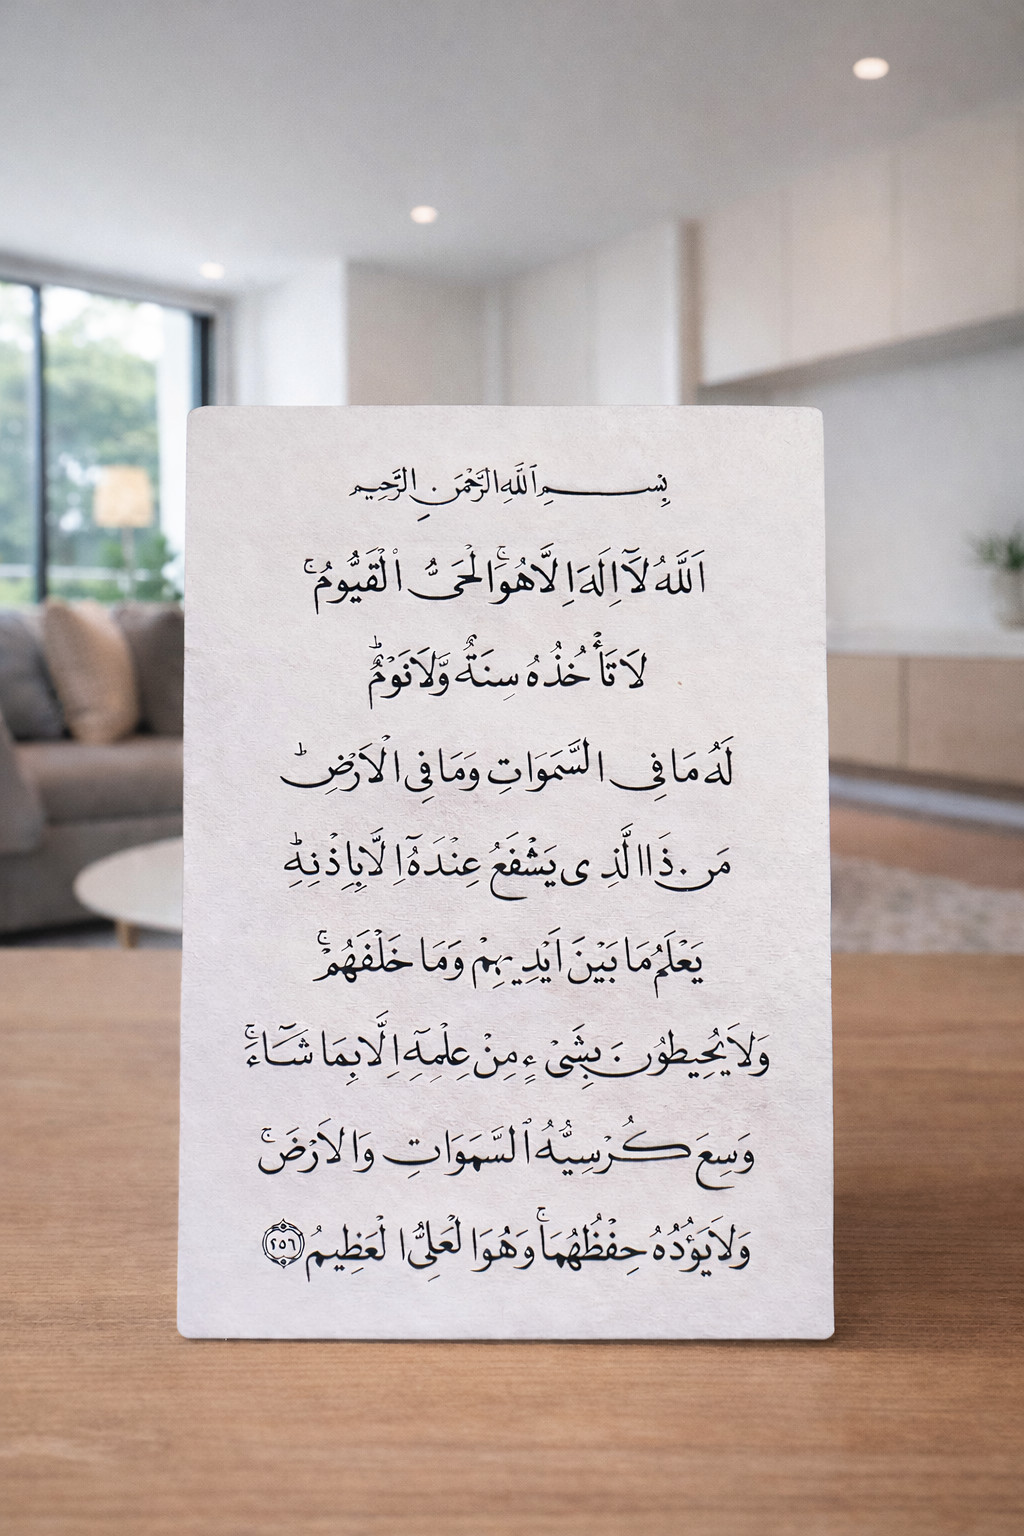 بِسْمِ ٱللَّهِ الرَّحْمَنِ الرَّحِيمِ
اَللَّهُ لَآ اِلَهَ اِلَّا هُوَۚ الْحَىُّ الْقَيُّومُۚ
لَا تَأْخُذُهُ سِنَةٌ وَّلَا نَوْمٌؕ
لَهُ مَا فِى السَّمَوَاتِ وَمَا فِى الْاَرْضِؕ
مَن ذَا الَّذِى يَشْفَعُ عِنْدَهُٓ اِلَّا بِاِذْنِهِؕ
يَعْلَمُ مَا بَيْنَ اَيْدِيهِمْ وَمَا خَلْفَهُمْۚ
وَلَا يُحِيطُونَ بِشَىْءٍ مِنْ عِلْمِهِٓ اِلَّا بِمَا شَآءَۚ
وَسِعَ كُرْسِيُّهُ ٱلسَّمَوَاتِ وَالْاَرْضَۚ
وَلَا يَؤُدُهُ حِفْظُهُمَاۚ وَهُوَ الْعَلِىُّ الْعَظِيمُ ٢٥٦